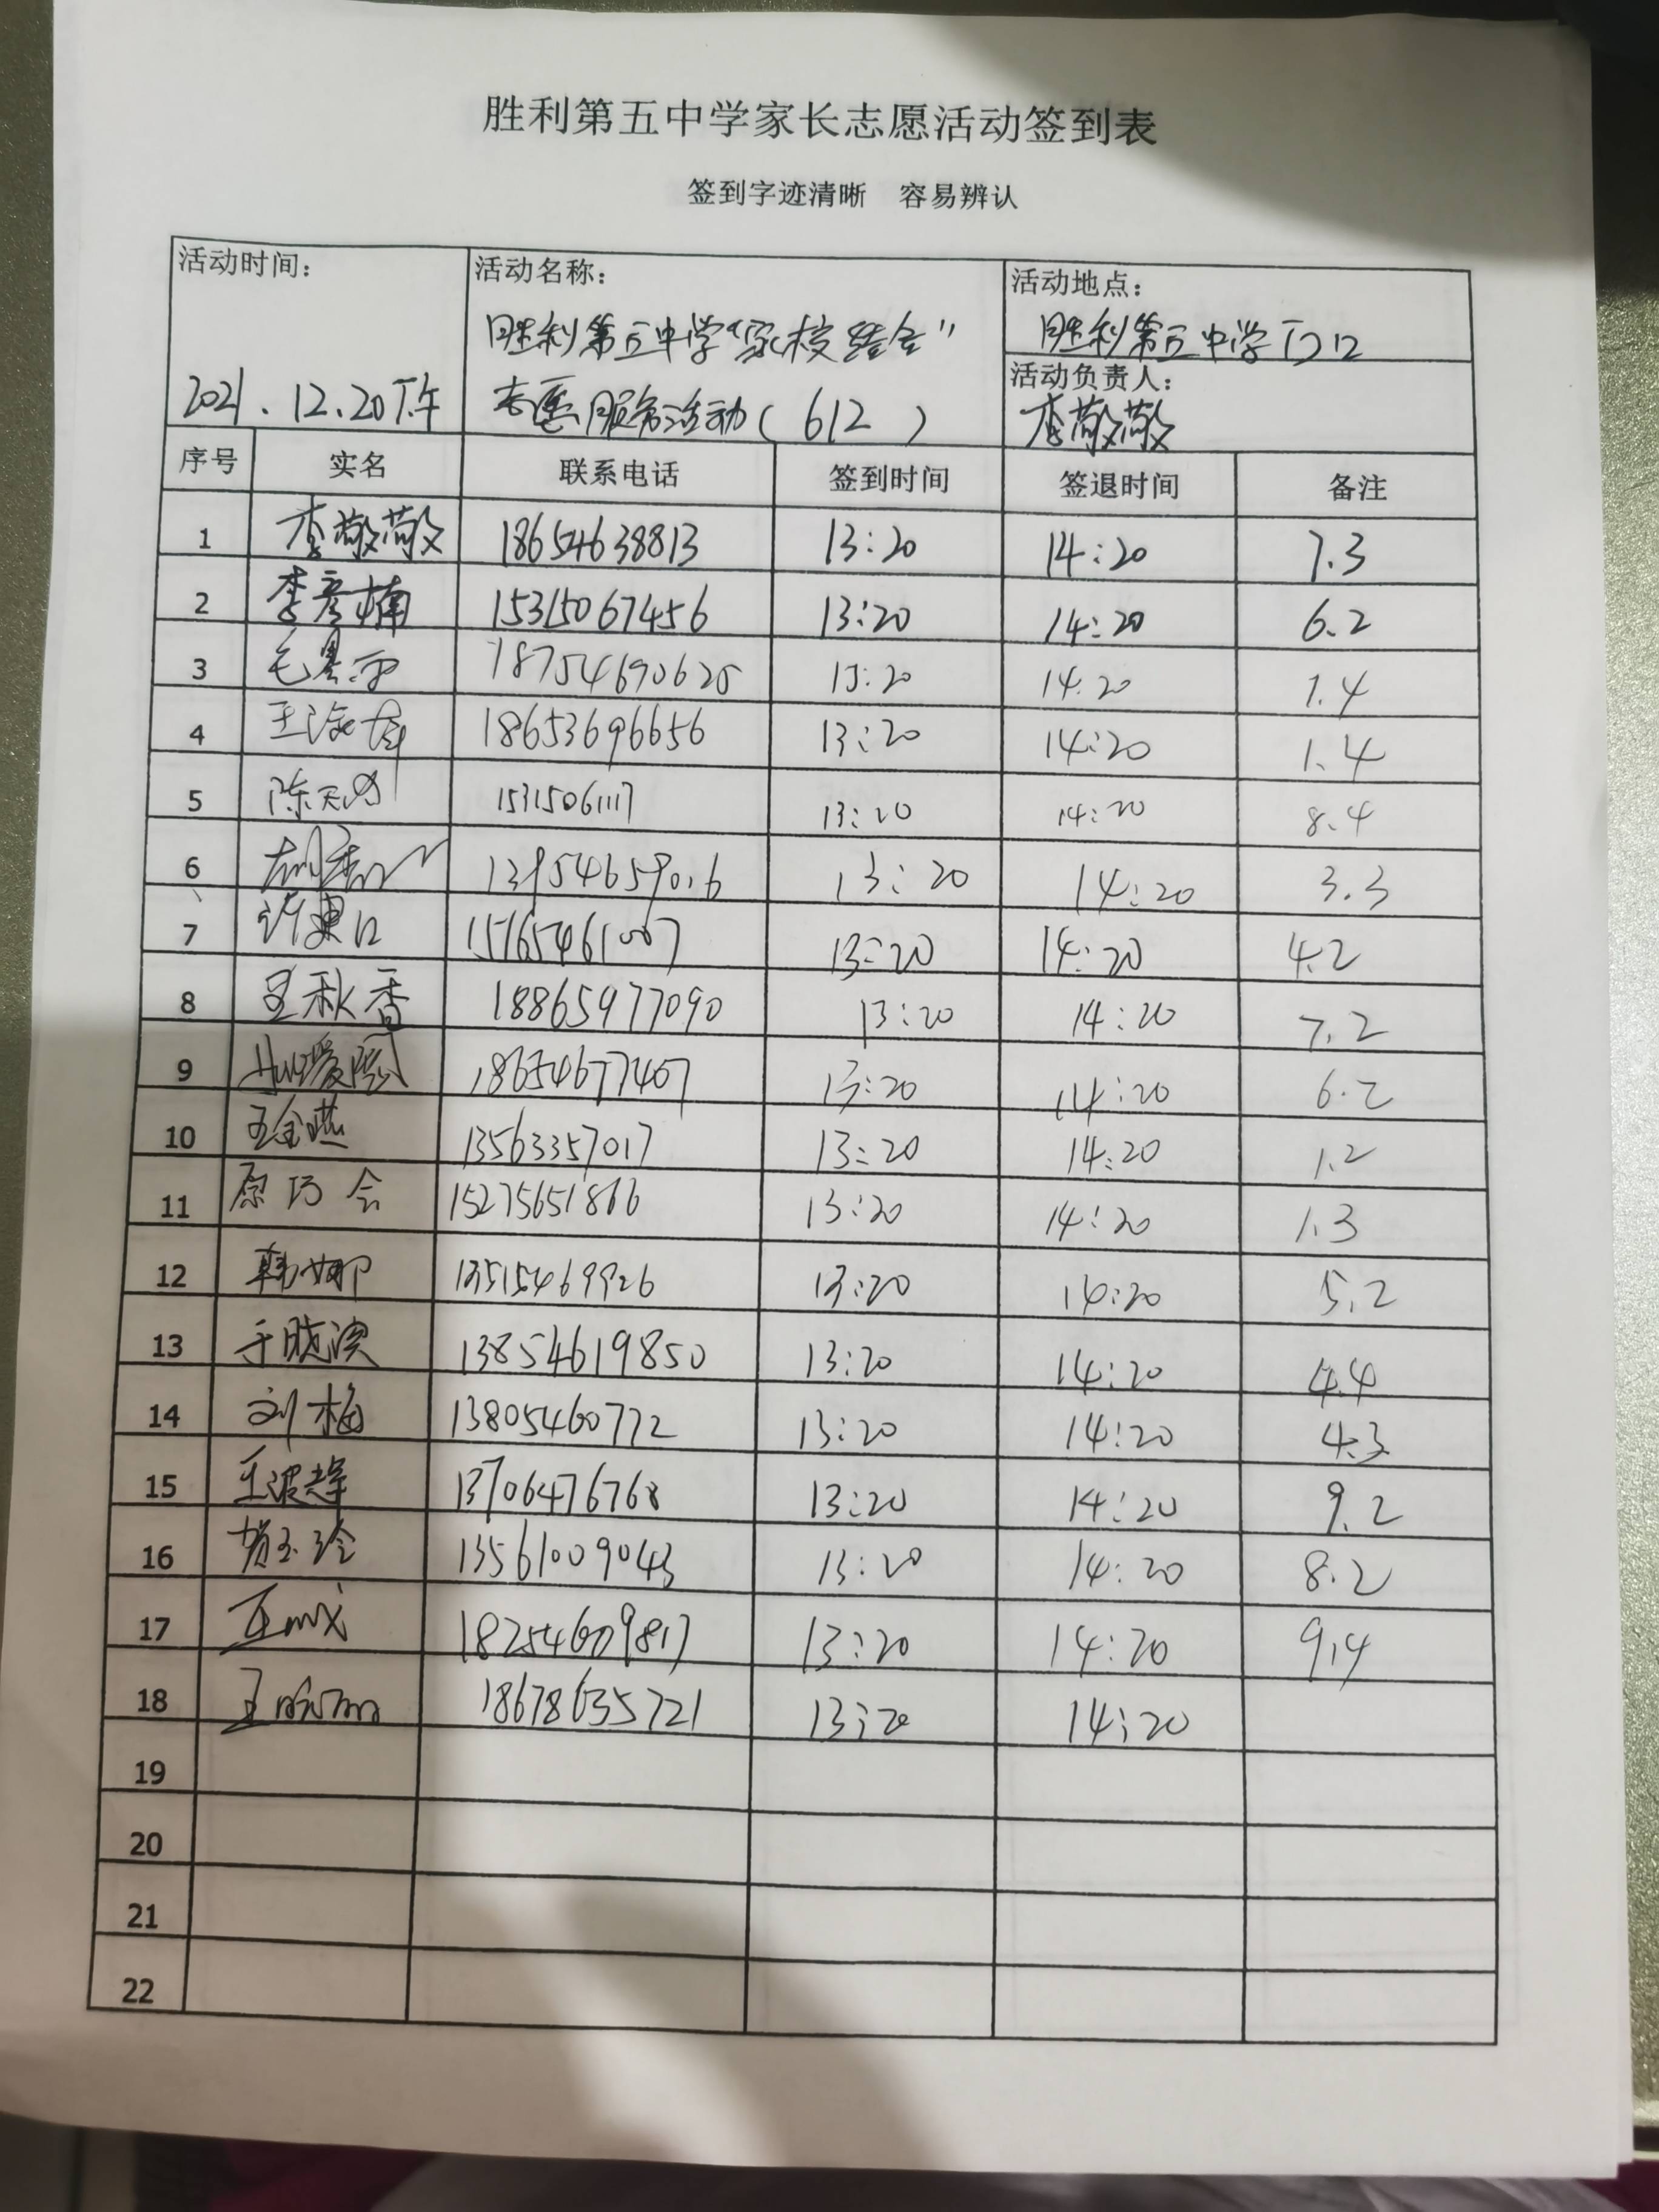 胜利第五中学家长志愿活动签到表
签到字迹清晰 容易辨认
活动时间: 活动名称: 活动地点:
胜利第五中学“家校结合” 胜利第五中学门口
活动负责人:
2021.12.20下午 志愿服务活动(612) 李敬敬
序号 实名 联系电话 签到时间 签退时间 备注
1 李敬敬 18654638813 13:20 14:20 7.3
2 李彦楠 15315067456 13:20 14:20 6.2
3 18754690625 13:20 14:20 1.4
4 18653696656 13:20 14:20 1.4
5 15315061117 13:20 14:20 8.4
6 13954659016 13:20 14:20 3.3
7 13:20 14:20 4.2
8 王秋香 18865977090 13:20 14:20 7.2
9 18654677407 13:20 14:20 6.2
10 王金燕 13563357017 13:20 14:20 1.2
11 原巧会 15275651866 13:20 14:20 1.3
12 韩娜 13515469926 13:20 14:20 5.2
13 13854619850 13:20 14:20 4.4
14 刘梅 13805460772 13:20 14:20 4.3
15 13706476768 13:20 14:20 9.2
16 贺玉玲 13561009043 13:20 14:20 8.2
17 18254609817 13:20 14:20 9.4
18 18678635721 13:20 14:20
19
20
21
22